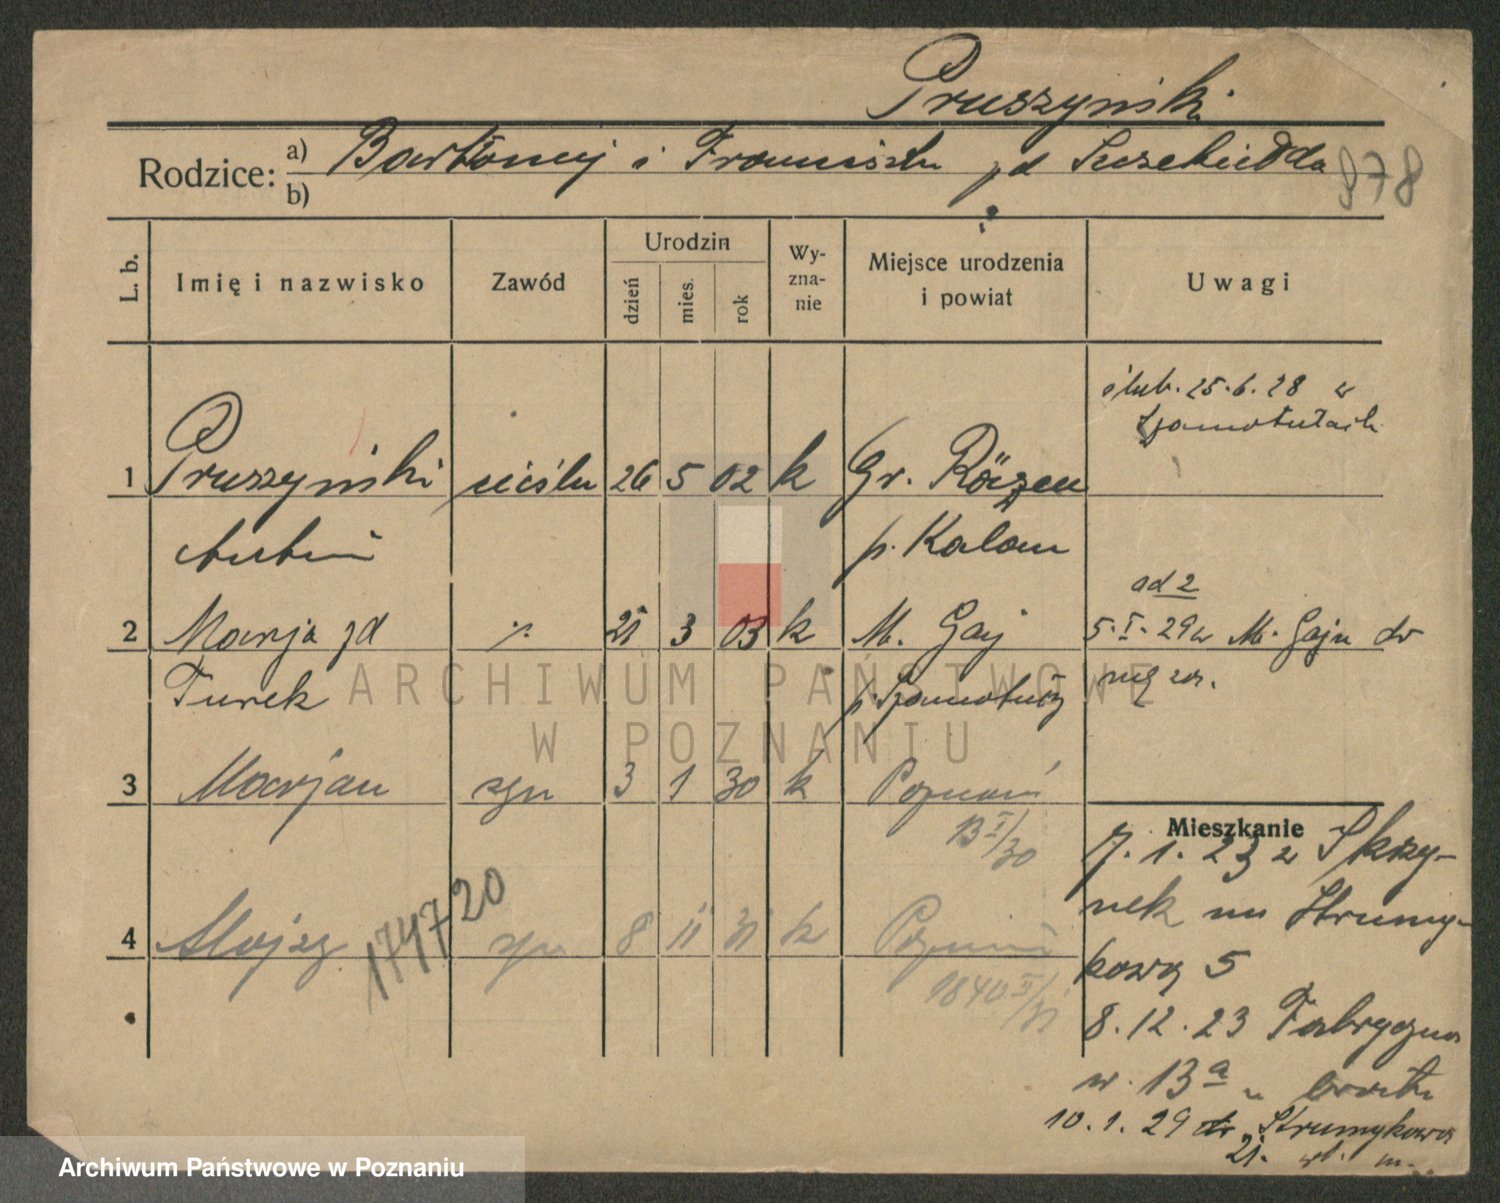 Pruszyński
Rodzice: a) Bartłomiej i Franciszka zd
b)
878
L. b.
Imię i nazwisko
Zawód
Urodzin
dzień
mies.
rok
Wy-
zna-
nie
Miejsce urodzenia
i powiat
Uwagi
ślub. 25.6.28 w
Szamotułach
1 Pruszyński cieśla 26 5 02 k Gr.
p.
ad 2
2 Marja zd % 21 3 03 k M. Gaj 5.I.29 z M. Gaju do
Turek p. Szamotuły męża.
3 Marjan syn 3 1 30 k Poznań
13 I/30
Mieszkanie
7.1.23 z Skrzy-
nek na Strumy-
kową 5
4 Alojzy syn 8 11 31 k Poznań
174720
8.12.23 Fabryczna
13a u brata
10.1.29 do Strumykowa
21. wł. m.
ARCHIWUM PAŃSTWOWE
W POZNANIU
Archiwum Państwowe w Poznaniu